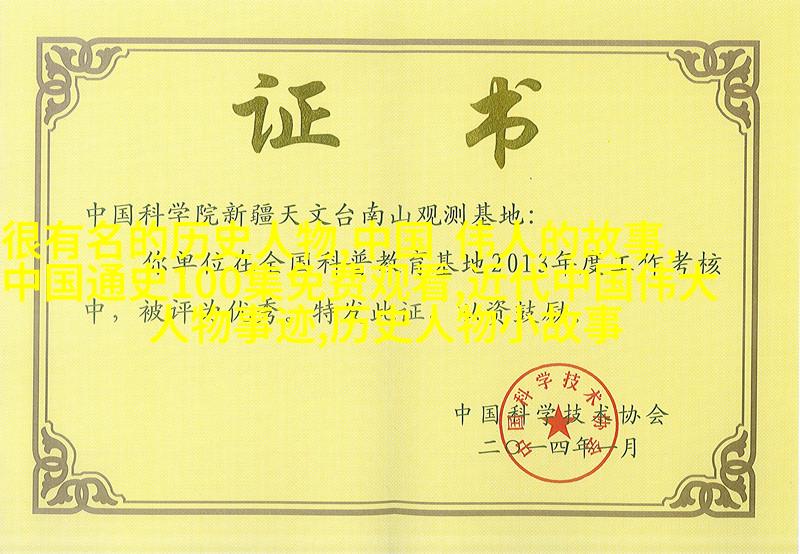 证 书
中国科学院新疆天文台南山观测基地:
很有名的历史人物,中国 伟人的故事,
你单位在全国科普教育基地2013年度工作考核
中国通史100集免费观看,近代中国伟大
中，被评为优秀。特发此证，以资鼓励。
人物事迹,历史人物小故事
中国科学技术协会
中国科学技术协会
二〇一四年一月